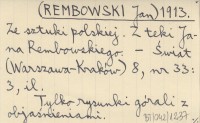 (REMBOWSKI Jan) 1913.
Ze sztuki polskiej. Z teki Ja-
na Rembowskiego. - Świat
(Warszawa-Kraków) 8, nr 33:
3, il.
Tylko rysunki górali z
objaśnieniami.